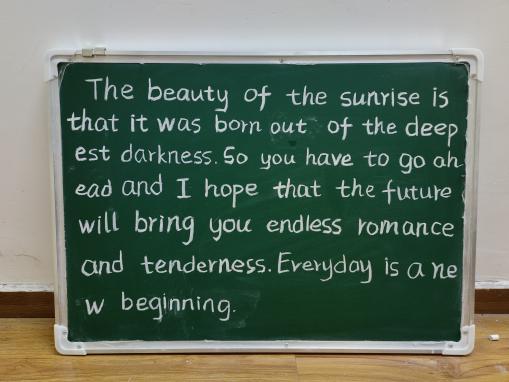 The beauty of the sunrise is
that it was born out of the deep
est darkness. So you have to go ah
ead and I hope that the future
will bring you endless romance
and tenderness. Everyday is a ne
w beginning.